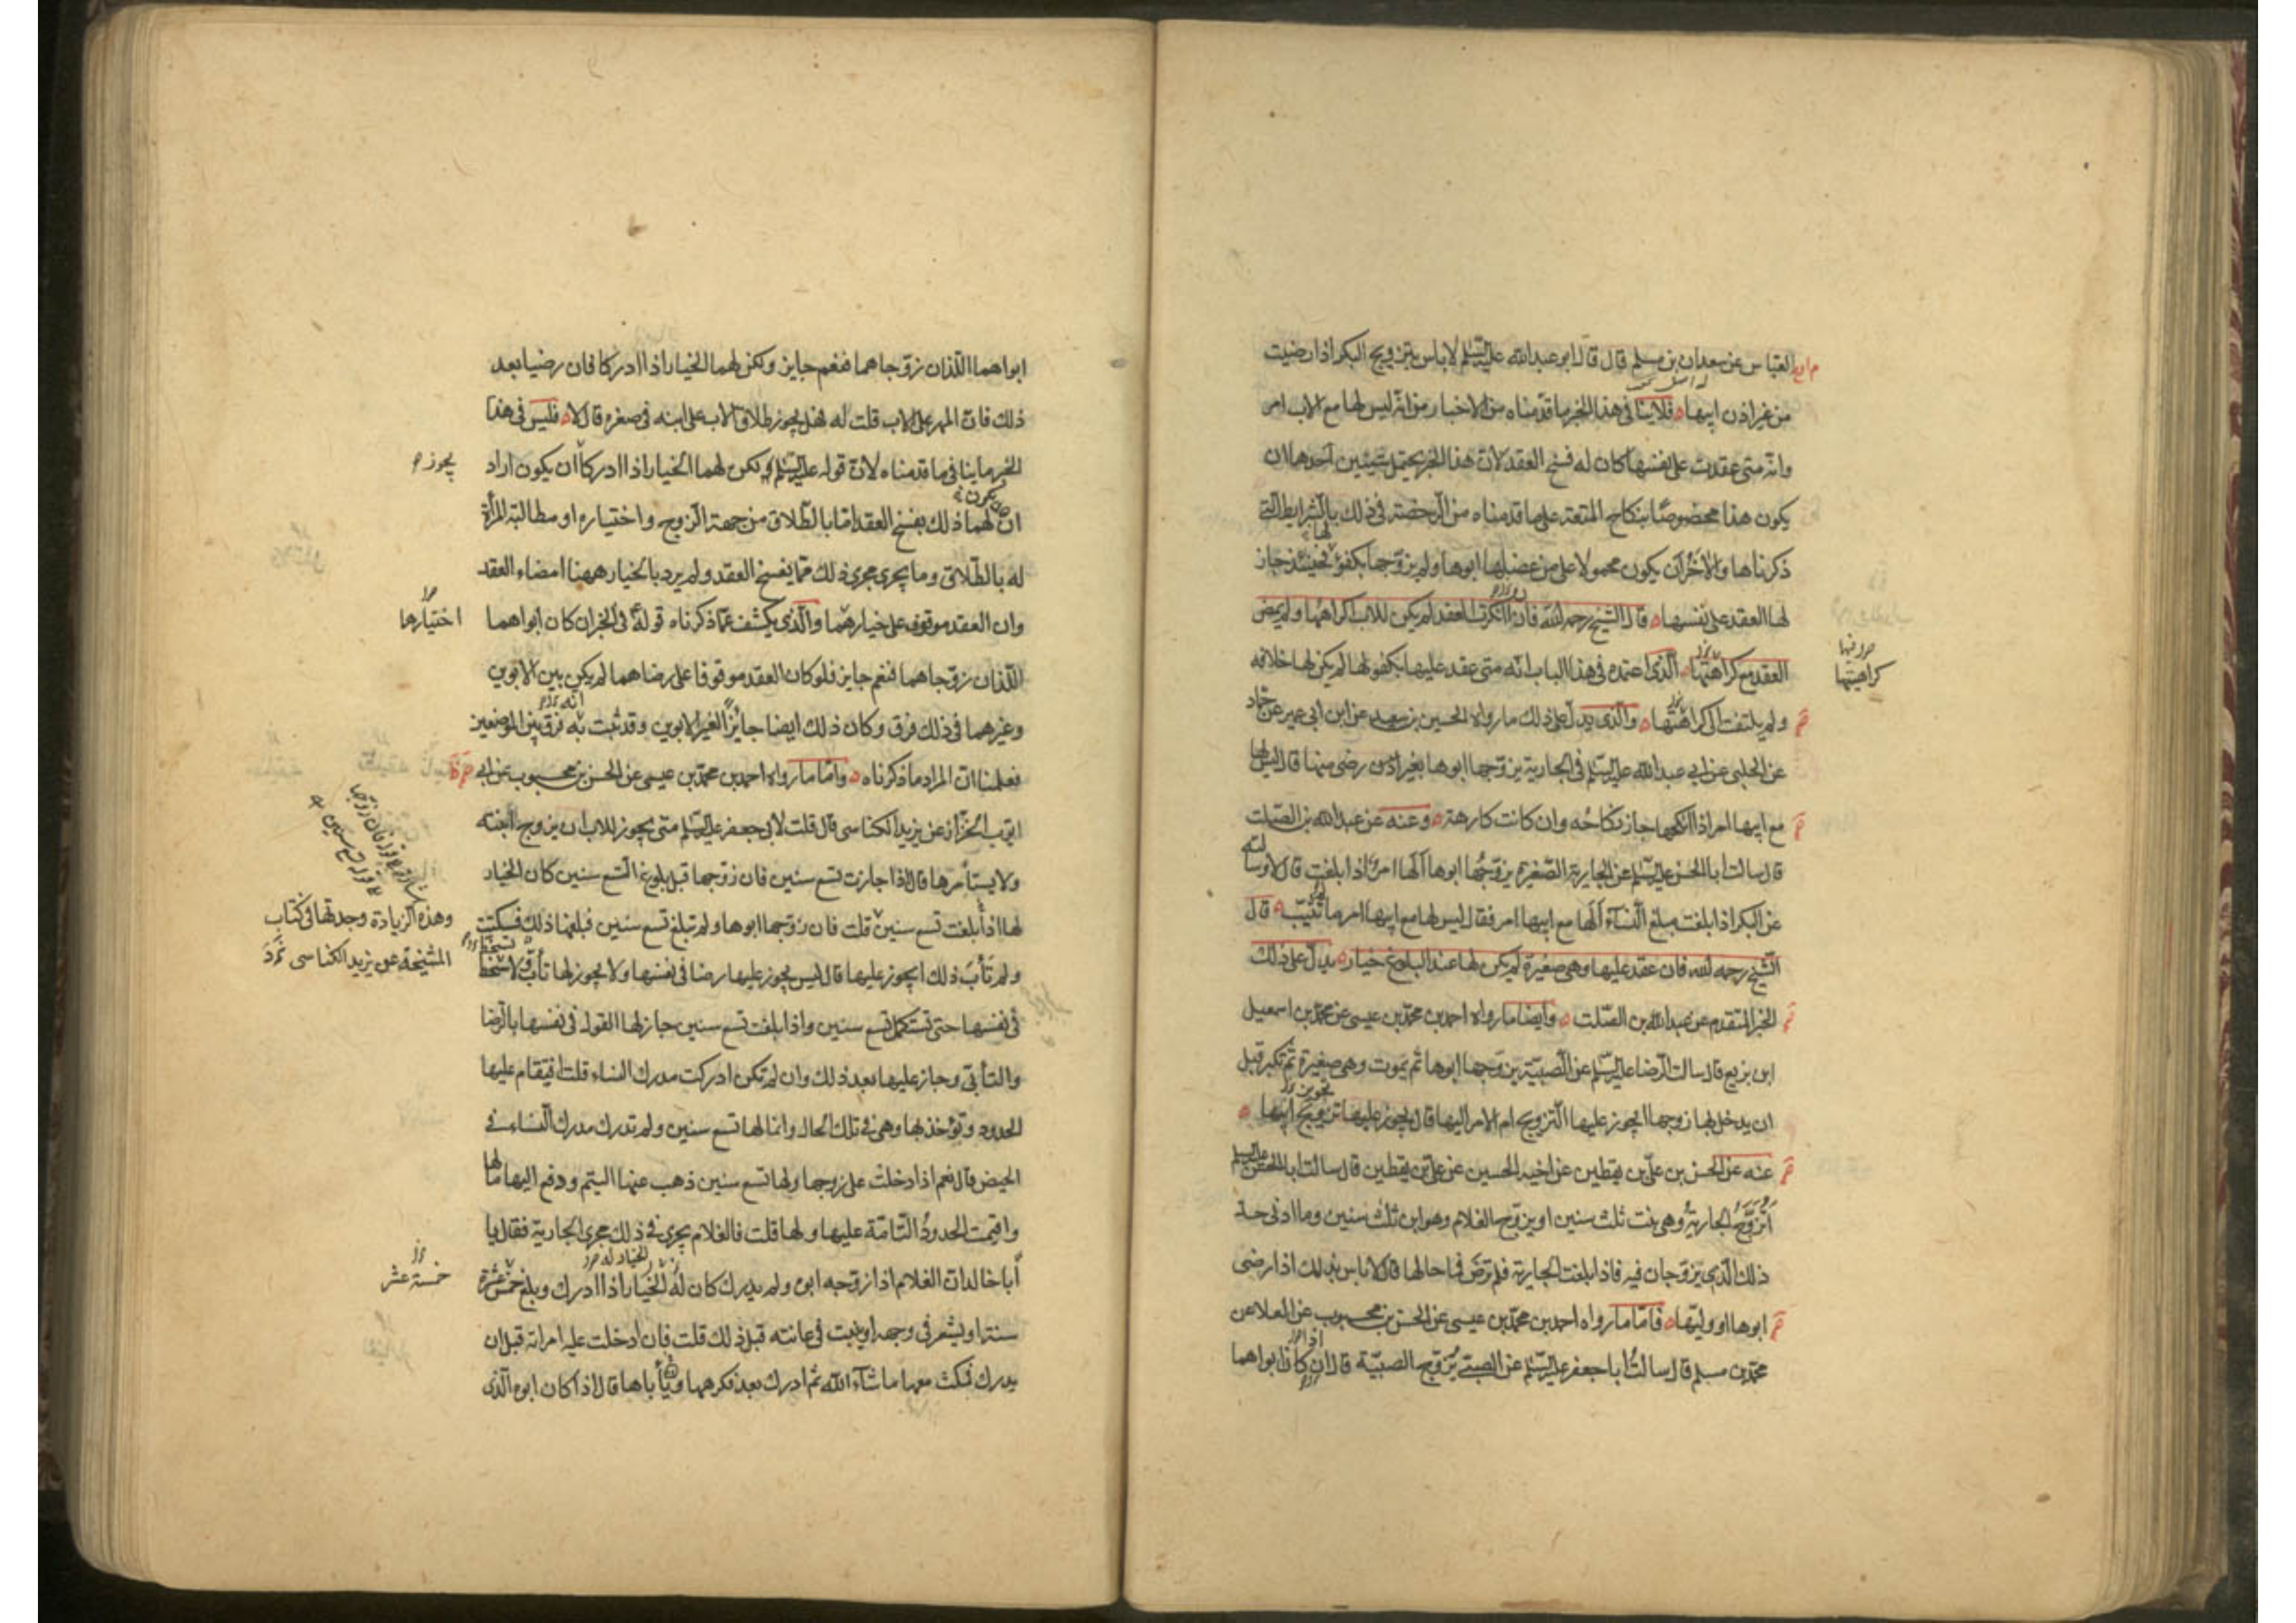 العباس عن سعدان بن مسلم قال قال ابو عبدالله عليه السلم لا باس بتزويج البكر اذا رضيت
من غير اذن ابيها فلاينا فى هذا الخبر ما قدمناه من الاخبار من انه ليس لها مع الاب امر
وانه متى عقدت على نفسها كان له فسخ العقد لان هذا الخبر يحتمل شيئين احدهما ان
يكون هذا مخصوصًا بنكاح المتعة على ما قدمناه من الرخصة فى ذلك بالشرايط التى
ذكرناها والاخر ان يكون محمولا على من عضلها ابوها ولم يزوجها بكفؤ فحينئذ جاز لها
لها العقد على نفسها قال الشيخ رحمه الله فان انكرت العقد لم يكن للاب اكراهها ولم يمض
العقد مع كراهتها الذى اعتمده فى هذا الباب انه متى عقد عليها بكفو لها لم يكن لها خلافه
كراهيتها
ولم يلتفت الى كراهتها والذى يدل على ذلك ما رواه الحسين بن سعيد عن ابن ابى عمير عن حماد
عن الحلبى عن ابى عبدالله عليه السلم فى الجارية يزوجها ابوها بغير رضى منها قال ليس لها
مع ابيها امر اذا انكحها جاز نكاحه وان كانت كارهة وعنه عن عبدالله بن الصلت
قال سالت ابا الحسن عليه السلم عن الجارية الصغيرة يزوجها ابوها الها امر اذا بلغت قال لا وسالته
عن البكر اذا بلغت مبلغ النسآء الها مع ابيها امر فقال ليس لها مع ابيها امر ما لم تثيب قال
الشيخ رحمه الله فان عقد عليها وهى صغيرة لم يكن لها عند البلوغ خيار يدل على ذلك
الخبر المتقدم عن عبدالله بن الصلت وايضا ما رواه احمد بن محمد بن عيسى عن محمد بن اسمعيل
ابن بزيع قال سالت الرضا عليه السلم عن الصبية يزوجها ابوها ثم يموت وهى صغيرة ثم تكبر قبل
ان يدخل بها زوجها ايجوز عليها التزويج ام الامر اليها قال يجوز عليها تزويج ابيها
عنه عن الحسن بن على بن يقطين عن اخيه الحسين عن على بن يقطين قال سالت ابا الحسن عليه السلم
اتزوج الجارية وهى بنت ثلث سنين او يزوج الغلام وهو ابن ثلث سنين وما ادنى حد
ذلك الذى يزوجان فيه فاذا بلغت الجارية فلم ترض فما حالها قال لا باس بذلك اذا رضى
ابوها او وليها فاما ما رواه احمد بن محمد بن عيسى عن الحسن بن محبوب عن العلا عن
محمد بن مسلم قال سالت ابا جعفر عليه السلم عن الصبى يزوج الصبية قال ان كان ابواهما
ابواهما اللذان زوجاهما فنعم جايز ولكن لهما الخيار اذا ادركا فان رضيا بعد
ذلك فان المهر على الاب قلت له فهل يجوز طلاق الاب على ابنه فى صغره قال لا فليس فى هذا
الخبر ما ينا فى ما قدمناه لان قوله عليه السلم ولكن لهما الخيار اذا ادركا ان يكون اراد
يجوز
ان لهما ذلك بفسخ العقد اما بالطلاق من جهة الزوج واختياره او مطالبة المرأة
له بالطلاق وما يجرى مجرى ذلك مما يفسخ العقد ولم يرد بالخيار ههنا امضاء العقد
وان العقد موقوف على خيارهما والذى يكشف عما ذكرناه قوله فى الخبر ان كان ابواهما
اختيارهما
اللذان زوجاهما فنعم جايز فلو كان العقد موقوفا على رضاهما لم يكن بين الابوين
وغيرهما فى ذلك فرق وكان ذلك ايضا جائزًا لغير الابوين وقد ثبت به فرق بين الموضعين
فعلمنا ان المراد ما ذكرناه واما ما رواه احمد بن محمد بن عيسى عن الحسن بن محبوب عن ابى
ايوب الخزاز عن يزيد الكناسى قال قلت لابى جعفر عليه السلم متى يجوز للاب ان يزوج ابنته
ولا يستأمرها قال اذا جازت تسع سنين فان زوجها قبل بلوغ التسع سنين كان الخيار
لها اذا بلغت تسع سنين قلت فان زوجها ابوها ولم تبلغ تسع سنين فبلغها ذلك فسكتت
وهذه الزيادة وجدتها فى كتاب
المشيخة عن يزيد الكناسى
ولم تأب ذلك ايجوز عليها قال ليس يجوز عليها رضا فى نفسها ولا يجوز لها تأب ولا سخط
فى نفسها حتى تستكمل تسع سنين واذا بلغت تسع سنين جاز لها القول فى نفسها بالرضا
والتأبى وجاز عليها بعد ذلك وان لم تكن ادركت مدرك النساء قلت افيقام عليها
الحدود وتؤخذ بها وهى فى تلك الحال وانما لها تسع سنين ولم تدرك مدرك النساء فى
الحيض قال نعم اذا دخلت على زوجها ولها تسع سنين ذهب عنها اليتم ودفع اليها مالها
واقيمت الحدود التامة عليها ولها قلت فالغلام يجرى فى ذلك مجرى الجارية فقال يا
أبا خالد ان الغلام اذا زوجه ابوه ولم يدرك كان له الخيار اذا ادرك وبلغ خمس عشرة
خمسة عشر
سنة او يشعر فى وجهه او ينبت فى عانته قبل ذلك قلت فان ادخلت عليه امراته قبل ان
يدرك فمكث معها ما شآء الله ثم ادرك بعد فكرهها وتأباها قال اذا كان ابوه الذى